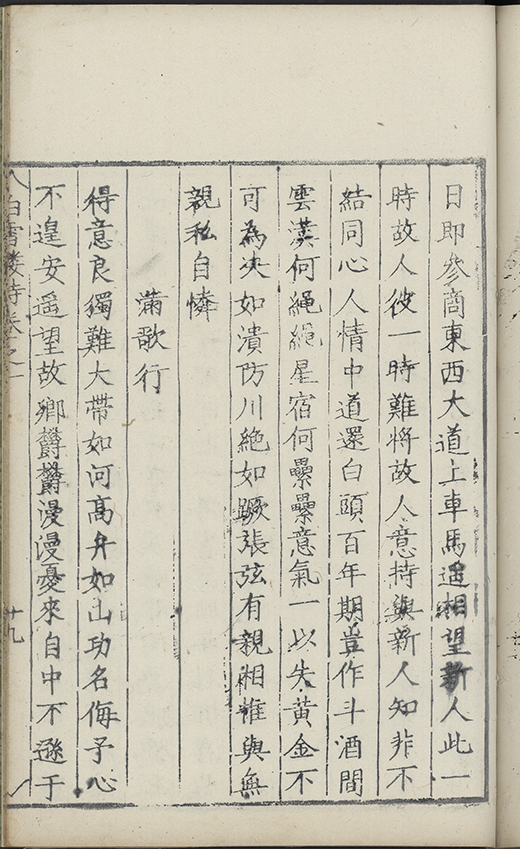 日即參商東西大道上車馬遥相望新人此一
時故人彼一時難將故人意持與新人知非不
結同心人情中道還白頭百年期豈作斗酒間
雲漢何繩繩星宿何纍纍意氣一以失黃金不
可為决如潰防川絶如蹶張弦有親相推與無
親私自憐
滿歌行
得意良獨難大帶如河高弁如山功名侮予心
不遑安遥望故鄉欝欝漫漫憂來自中不遜于
白雪樓詩卷之一
十九